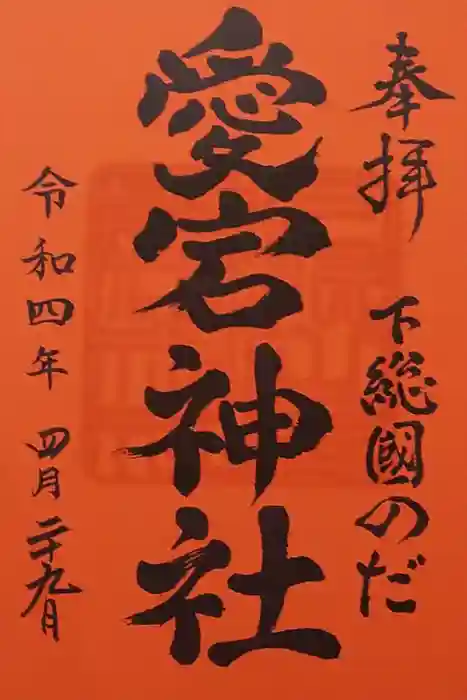 奉拝 下總國のだ
愛宕神社
令和四年 四月二十九日